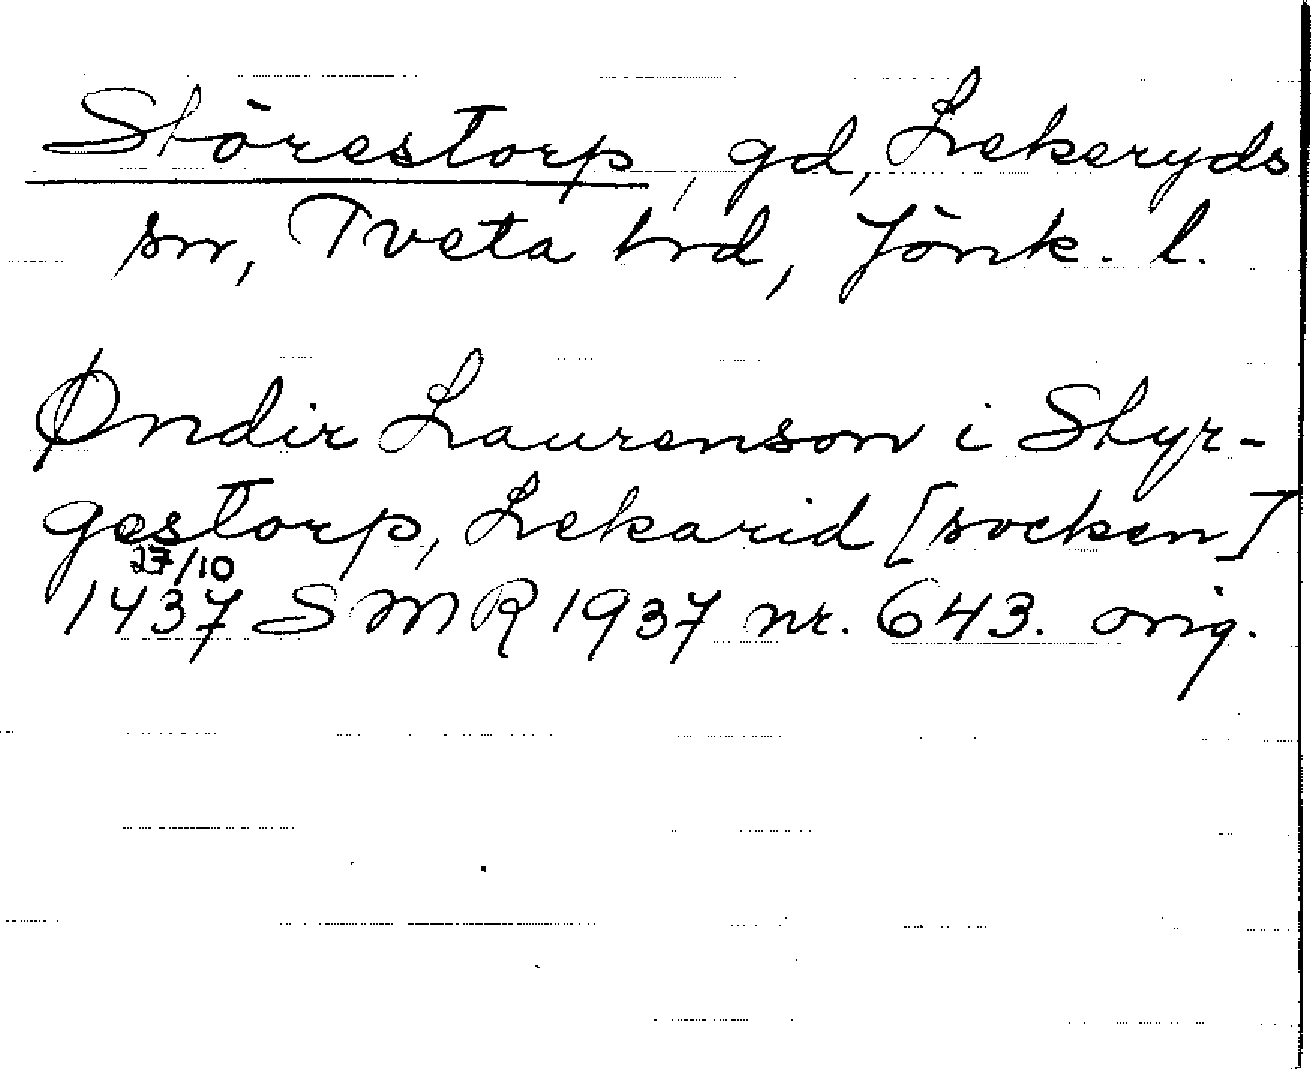 Störestorp, gd, Lekeryds
sn, Tveta hrd, Jönk. l.
Øndir Laurenson i Styr-
gestorp, Lekarid [socken]
27/10
1437 SMR 1937 nr. 643. orig.